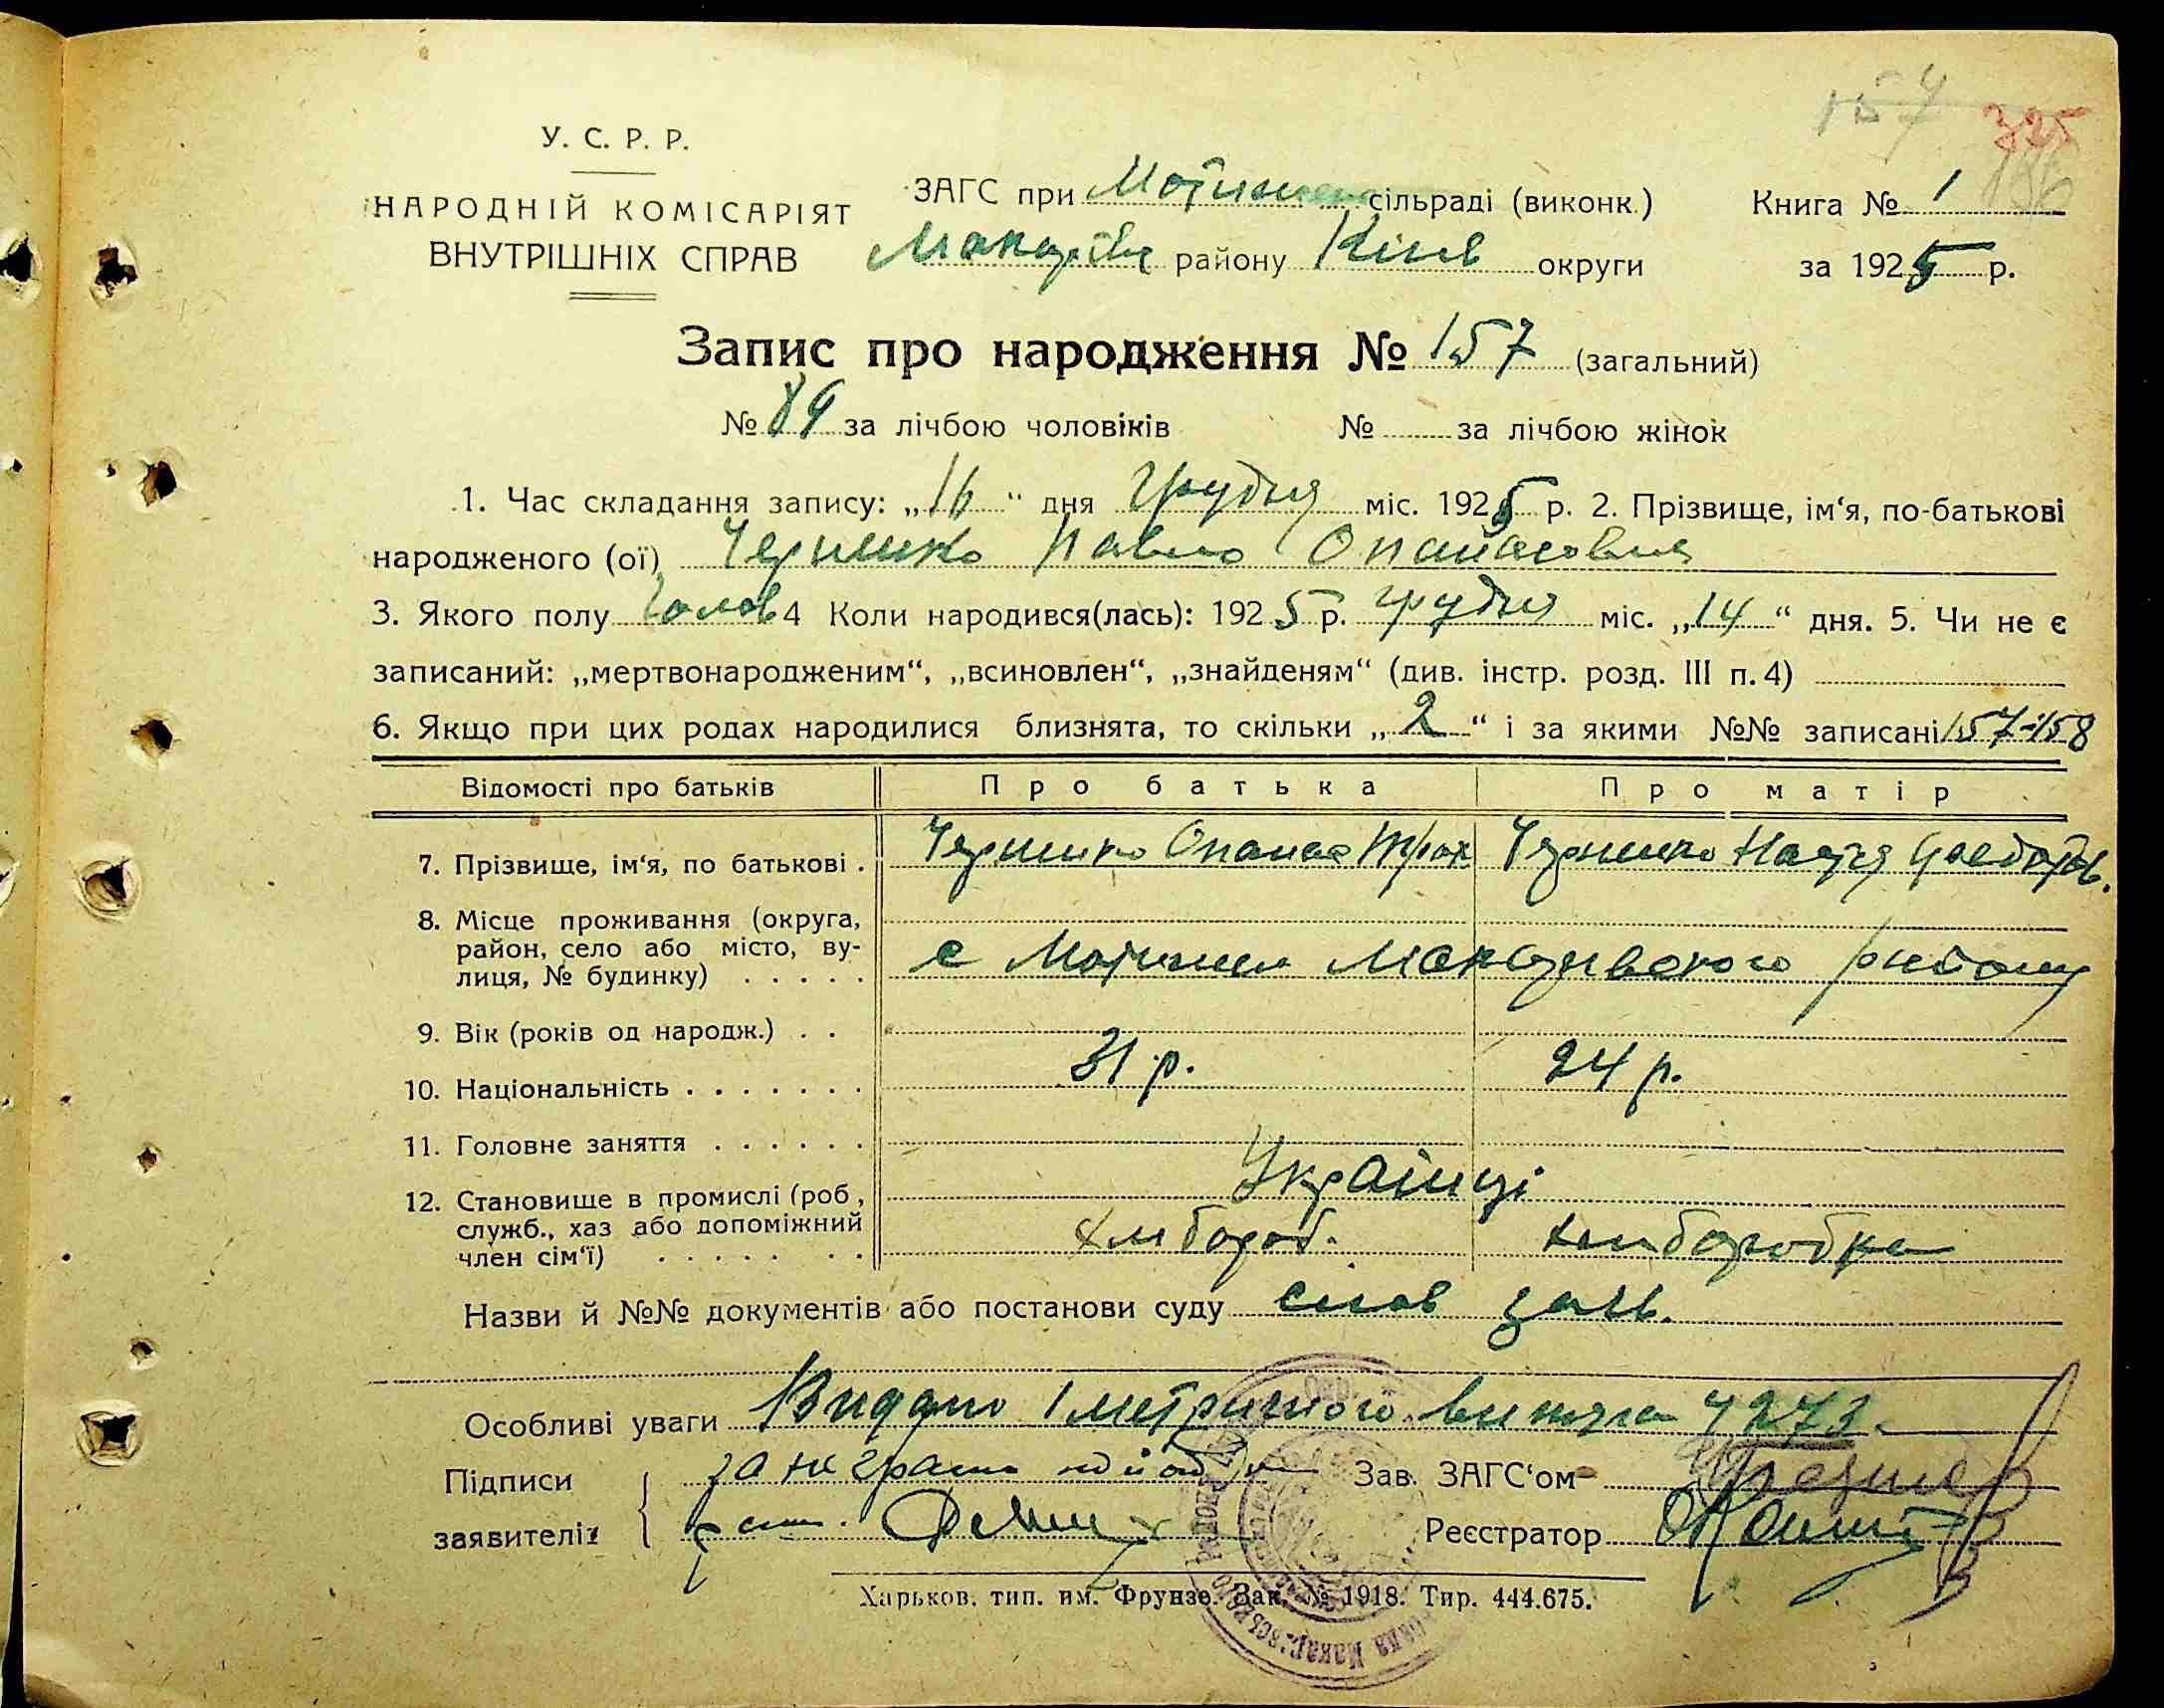 157
325
196
У. С. Р. Р.
НАРОДНІЙ КОМІСАРІЯТ
ВНУТРІШНІХ СПРАВ
ЗАГС при Мотижен сільраді (виконк.)
Макарів району Київ округи
Книга № 1
за 1925 р.
Запис про народження № 157 (загальний)
№ 89 за лічбою чоловіків № за лічбою жінок
1. Час складання запису: „16“ дня Грудня міс. 1925 р. 2. Прізвище, ім‘я, по-батькові
народженого (ої) Павло Опанасович
3. Якого полу Чолов 4 Коли народився(лась): 1925 р. грудня міс. „14“ дня. 5. Чи не є
записаний: „мертвонародженим“, „всиновлен“, „знайденям“ (див. інстр. розд. III п. 4)
6. Якщо при цих родах народилися близнята, то скільки „2“ і за якими №№ записані 157-158
Відомості про батьків Про батька Про матір
7. Прізвище, ім‘я, по батькові . Опанас Трох
8. Місце проживання (округа,
район, село або місто, ву-
лиця, № будинку) . . . . .
с Мотижин Макарівского району
9. Вік (років од народж.) . .
31 р. 24 р.
10. Національність . . . . . . .
11. Головне заняття . . . . . .
Українці
12. Становище в промислі (роб,
служб., хаз або допоміжний
член сім‘ї) . . . . . . .
хлібороб. хліборобка
Назви й №№ документів або постанови суду слов заяв.
Особливі уваги Видано 1 метричного витяга 4273.
Підписи
заявителів
за неграмотного
Зав. ЗАГС‘ом
Реєстратор
Харьков. тип. им. Фрунзе. Зак. № 1918. Тир. 444.675.